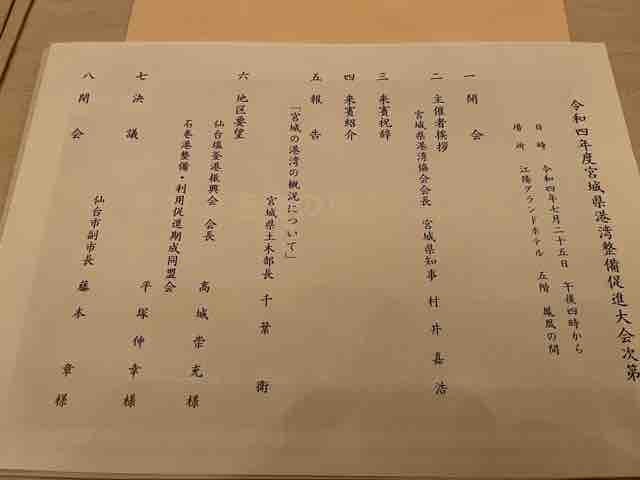 令和四年度宮城県港湾整備促進大会次第
日時　令和四年七月二十五日　午後四時から
場所　江陽グランドホテル　五階　鳳凰の間
一　開会
二　主催者挨拶
宮城県港湾協会会長　宮城県知事　村井嘉浩
三　来賓祝辞
四　来賓紹介
五　報告
「宮城の港湾の概況について」
宮城県土木部長　千葉　衛
六　地区要望
仙台塩釜港振興会　会長　高城崇克様
石巻港整備・利用促進期成同盟会
七　決議　平塚伸幸様
八　閉会　仙台市副市長　藤本　章様